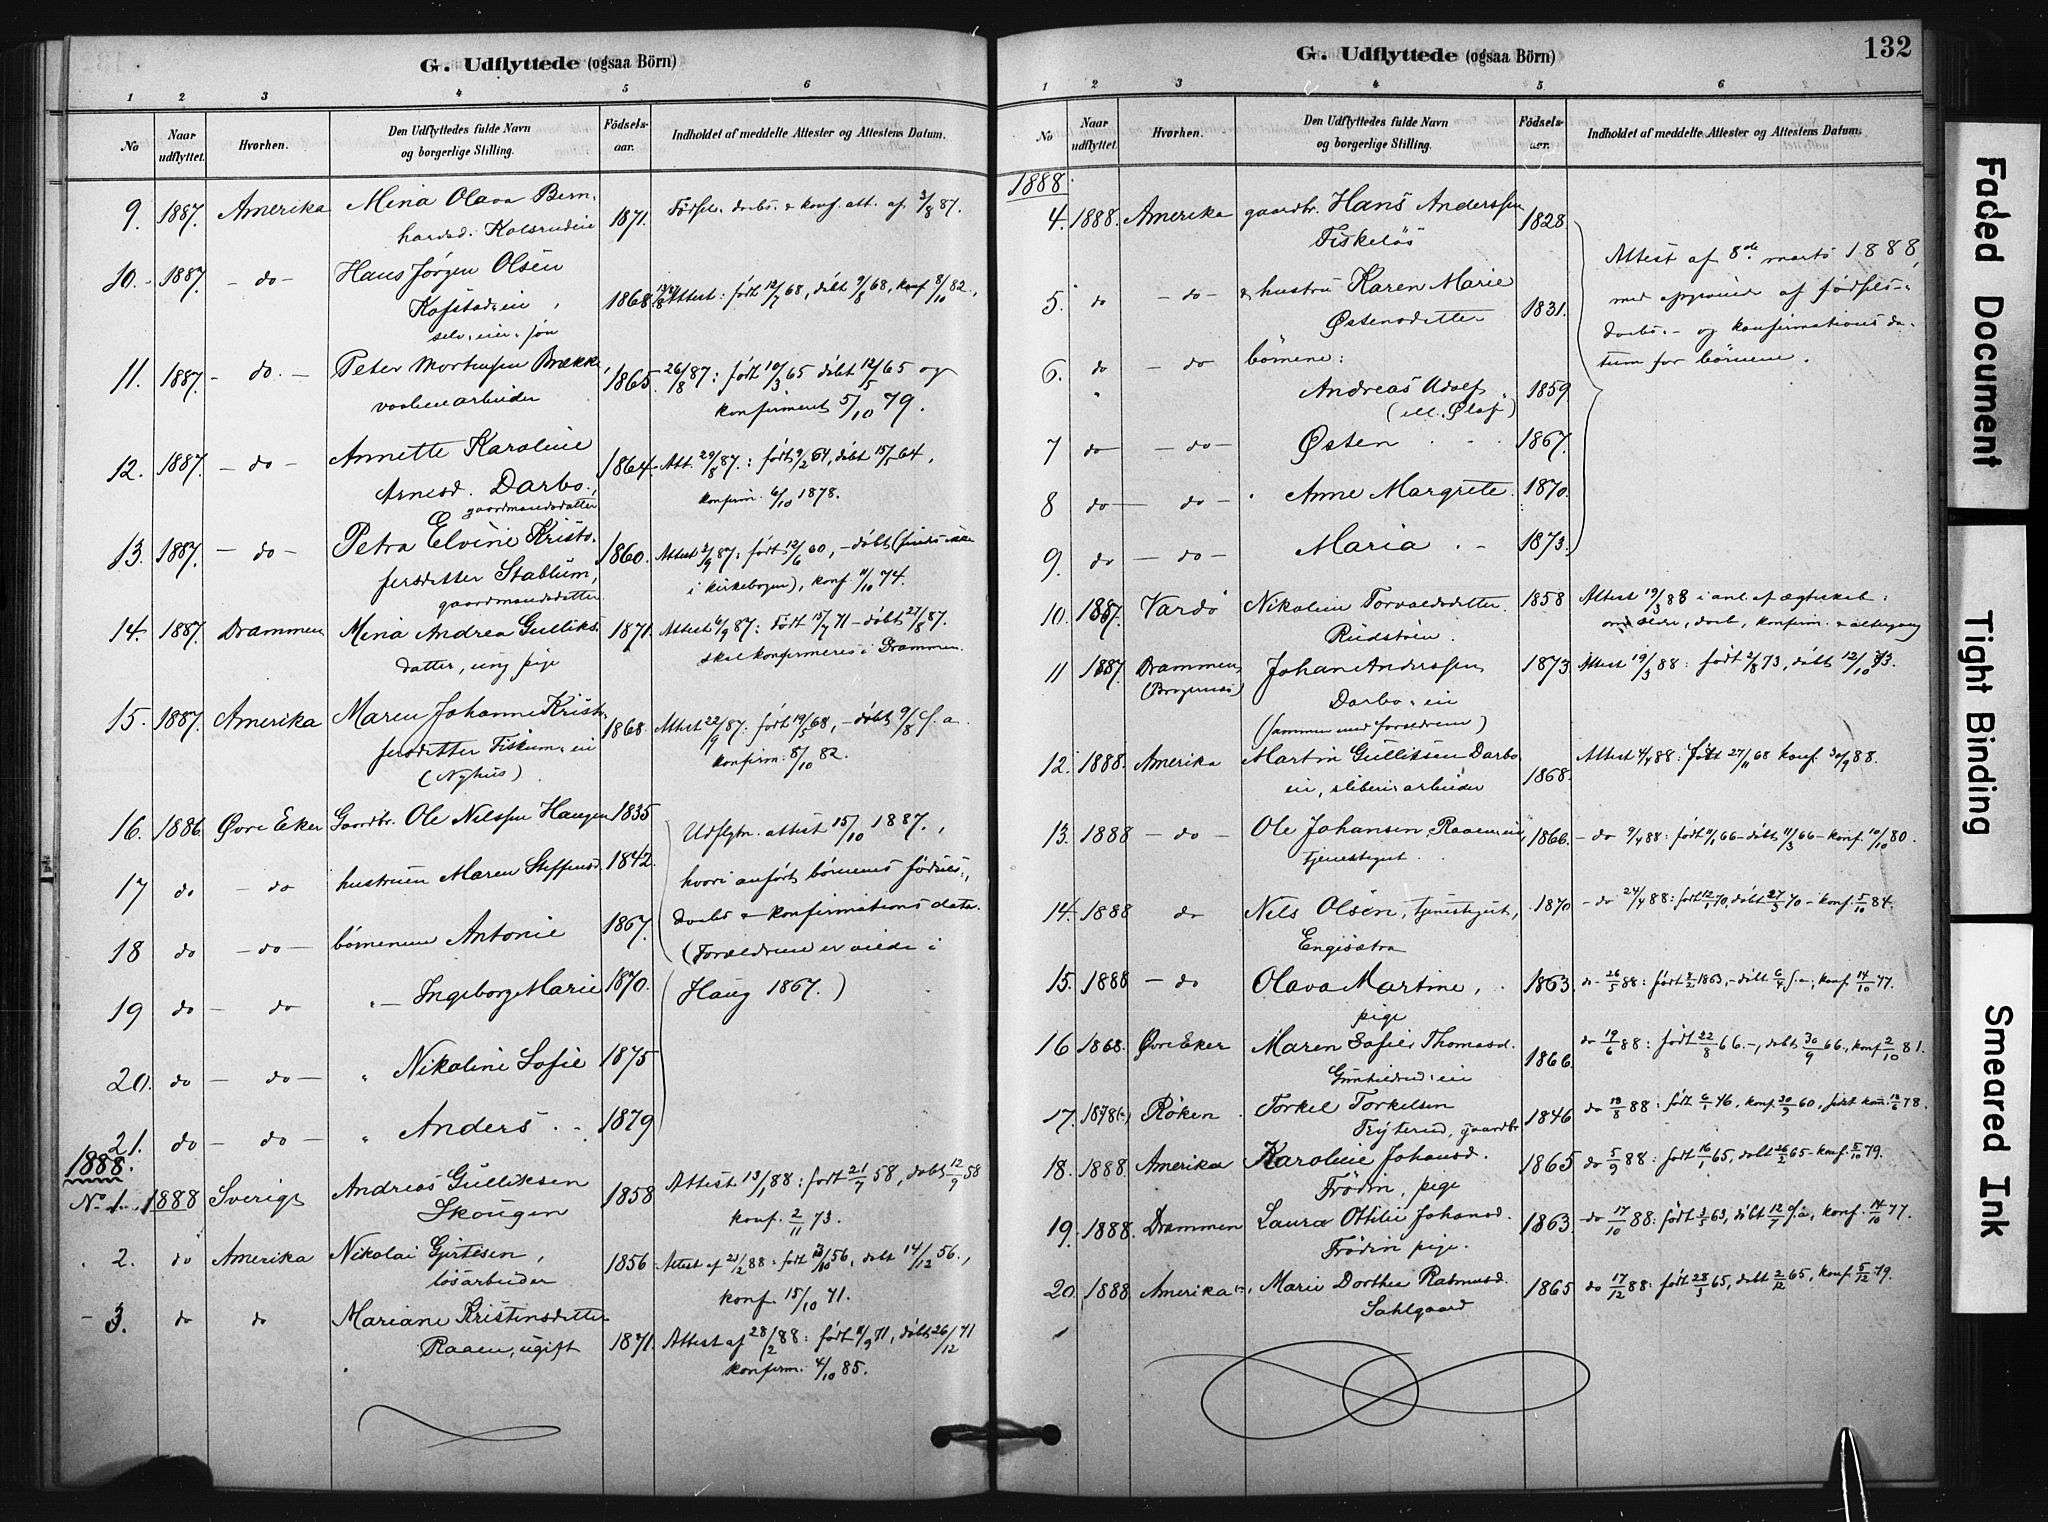 G. Udflyttede (ogsaa Börn)
1 2 3 4 5 6
No
Naar udflyttet.
Hvorhen.
Den Udflyttedes fulde Navn og borgerlige Stilling.
Födsels-aar.
Indholdet af meddelte Attester og Attestens Datum.
9. 1887. Amerika Mina Olava Bern- 1871. Fødsel- daabs- & konf. att. af 3/8 87.
hardsd. Kolsrudeie
10. 1887. - do - Hans Jørgen Olsen 1868 Attest: født 12/7 68, døbt 9/8 68, konf 8/10 82.
Kofstad-eie,
selv-eier-søn
11. 1887. - do. - Peter Mortensen Brække, 1865. 26/8 87: født 10/3 65 døbt 12/5 65 og
arbeider konfirmeret 5/10 79.
12. 1887. - do - Annette Karoline 1864. Att. 29/8 87.: født 9/2 64, døbt 15/5 64,
Arnesd. Darbo, konfirm. 6/10 1878.
gaardmandsdatter
13. 1887. - do - Petra Elvine Kristo- 1860. Attest 2/9 87: født 12/6 60, - døbt (findes ikke
fersdatter Stablum, i kirkebogen), konf. 11/10 74.
gaardmandsdatter
14. 1887. Drammen Mina Andrea Gulliks- 1871. Attest 6/9 87: Født 15/7 71 - døbt 27/8 87.
datter, ung pige skal konfirmeres i Drammen.
15. 1887. Amerika Maren Johanne Krist- 1868. Attest 22/9 87: født 19/5 68, - døbt 9/8 s. a.
fersdatter Fiskum-eie konfirm. 8/10 82.
(Nyhus)
16. 1886. Øvre Eker Gaardbr. Ole Nilssen Haugen 1835 Udflytn. attest 15/10 1887.,
17 do - do hustruen Maren Steffensd. 1842. hvori anført børnenes fødsels-,
18 do - do - børnenene Antonie 1867. daabs & konfirmations data.
(Forældrene er viede i
19 do - do " - Ingeborg Marie 1870. Haug 1867.)
20. do - do - " Nikoline Sofie 1875
21. do - do - " Anders 1879
1888.
No 1. 1888 Sverige Andreas Gulliksen 1858 Attest 13/1 88: født 21/7 58, døbt 12/9 58
Skougen konf. 2/11 73.
2. do Amerika Nikolai Gjertsen, 1856 Attest af 21/2 88: født 3/10 56, døbt 14/12 56.,
løsarbeider konf. 15/10 71.
3. do do Mariane Kristensdatter
Raaen, ugift 1871. Attest af 28/2 88: født 11/9 71, døbt 26/12 71
konfirm. 4/10 85.
G. Udflyttede (ogsaa Börn)
132
1 2 3 4 5 6
No
Naar udflyttet.
Hvorhen.
Den Udflyttedes fulde Navn og borgerlige Stilling.
Födsels-aar.
Indholdet af meddelte Attester og Attestens Datum.
1888.
4. 1888. Amerika gaardbr. Hans Anderssen 1828
Fiskeløs Attest af 8de marts 1888,
5. do - do - & hustru Karen Marie 1831. med opgivende af fødsels-
Østensdatter daabs- og konfirmationsda-
6. do - do børnene: tum for børnene.
" Andreas Adolf 1859
(ell. Olaf)
7 do - do - Østen 1867.
8 do - do - Anne Margrete 1870.
9. do - do - Maria 1873.
10. 1887. Vardø Nikoline Torvaldsdatter 1858 Attest 19/3 88 i anl. af ægteskab:
Rudstøen. daab, konfirm. & altergang
11 1887. Drammen Johan Anderssen 1873 Attest 19/3 88: født 2/8 73, døbt 12/10 73.
(Bragernæs) Darbo-eie
(sammen med forældrene)
12. 1888. Amerika Martin Gulliksen Darbo 1868. Attest 4/4 88: født 27/11 68 konf. 30/9 88.
eie, sliberiarbeider
13. 1888 - do - Ole Johansen Raaen-eie, 1866 - do 9/4 88: født 9/1 66 - døbt 11/3 66 - konf. 10/10 80.
tjenestegut
14 1888 do Nels Olsen, tjenestegut, 1870 - do 24/4 88: født 12/1 70, døbt 27/3 70 - konf. 5/10 84.
Engisætra
15. 1888 - do Olava Martine, 1863. do 26/5 88: født 2/2 1863, - døbt 6/4 s. a., konf. 14/10 77.
pige
16 1868. Øvre Eker Maren Sofie Thomasd. 1866. do 19/6 88: født 22/8 66. -, døbt 30/9 66., konf. 2/10 81.
17. Røken Torkel Torkelsen 1846 do 18/8 88: født 6/1 46, konf. 30/9 60, sidst kom. 18/6 78.
gaardbr
18. 1888. Amerika Karoline Johansd. 1865 do 5/9 88: født 16/1 65, døbt 26/2 65 - konf. 5/10 79.
Frödin, pige
19. 1888. Drammen Laura Ottilie Johansd. 1863. do 17/10 88: født 3/5 63, døbt 12/7 s. a, konf. 14/10 77.
Frödin pige.
20. 1888 Amerika Marie Dorthea Rasmusd. 1865 do 17/12 88: født 28/3 65, døbt 2/12 65, konf. 5/12 79.
Sahlgaard
Faded Document
Tight Binding
Smeared Ink